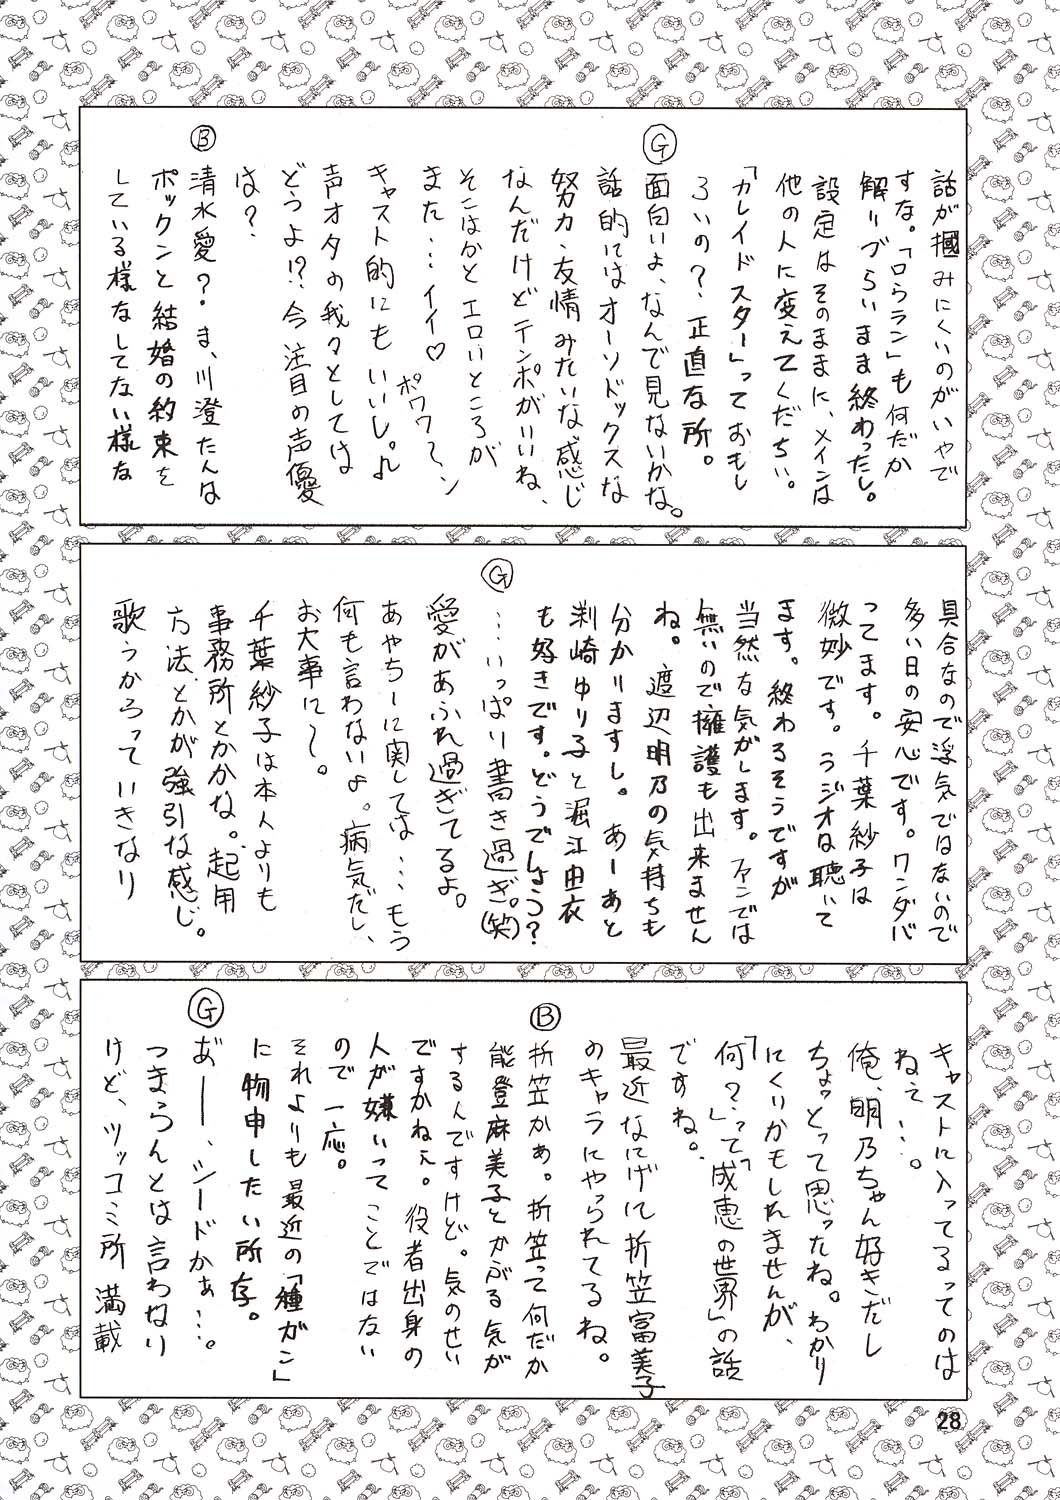 話が掴みにくいのがいやで
すな。「ロらラン」も何だか
解りづらいまま終わったし。
設定はそのままに、メインは
他の人に変えてくだちい。
「カレイドスター」っておもし
ろいの?正直な所。
G
面白いよ、なんで見ないかな。
話的にはオーソドックスな
努力・友情みたいな感じ
なんだけどテンポがいいね、
そこはかとエロいところが
また…イイ♡ポワワ〜ン
キャスト的にもいいし。♪
声オタの我々としては
どうよ!?今注目の声優
は?
B
清水愛?ま、川澄たんは
ボックンと結婚の約束を
している様なしてない様な
具合なので浮気ではないので
多い日の安心です。ワンダバ
ってます。千葉紗子は
微妙です。ラジオは聴いて
ます。終わるそうですが
当然な気がします。ファンでは
無いので擁護も出来ません
ね。渡辺明乃の気持ちも
分かりますし。あーあと
渕崎ゆり子と堀江由衣
も好きです。どうでしょう?
G
…いっぱい書き過ぎ。(笑)
愛があふれ過ぎてるよ。
あやちーに関しては…もう
何も言わないよ。病気だし、
お大事に〜。
千葉紗子は本人よりも
事務所とかかな。起用
方法とかが強引な感じ。
歌うからっていきなり
キャストに入ってるってのは
ねぇ…。
俺、明乃ちゃん好きだし
ちょっとって思ったね。わかり
にくいかもしれませんが、
「何?」って「成恵の世界」の話
ですね。
最近なにげに折笠富美子
のキャラにやられてるね。
B
折笠かぁ。折笠って何だか
能登麻美子とかぶる気が
するんですけど。気のせい
ですかねぇ。役者出身の
人が嫌いってことではない
ので一応。
それよりも最近の「種ガン」
に物申したい所存。
G
あ゛ー、シードかぁ…。
つまらんとは言わない
けど、ツッコミ所満載
28